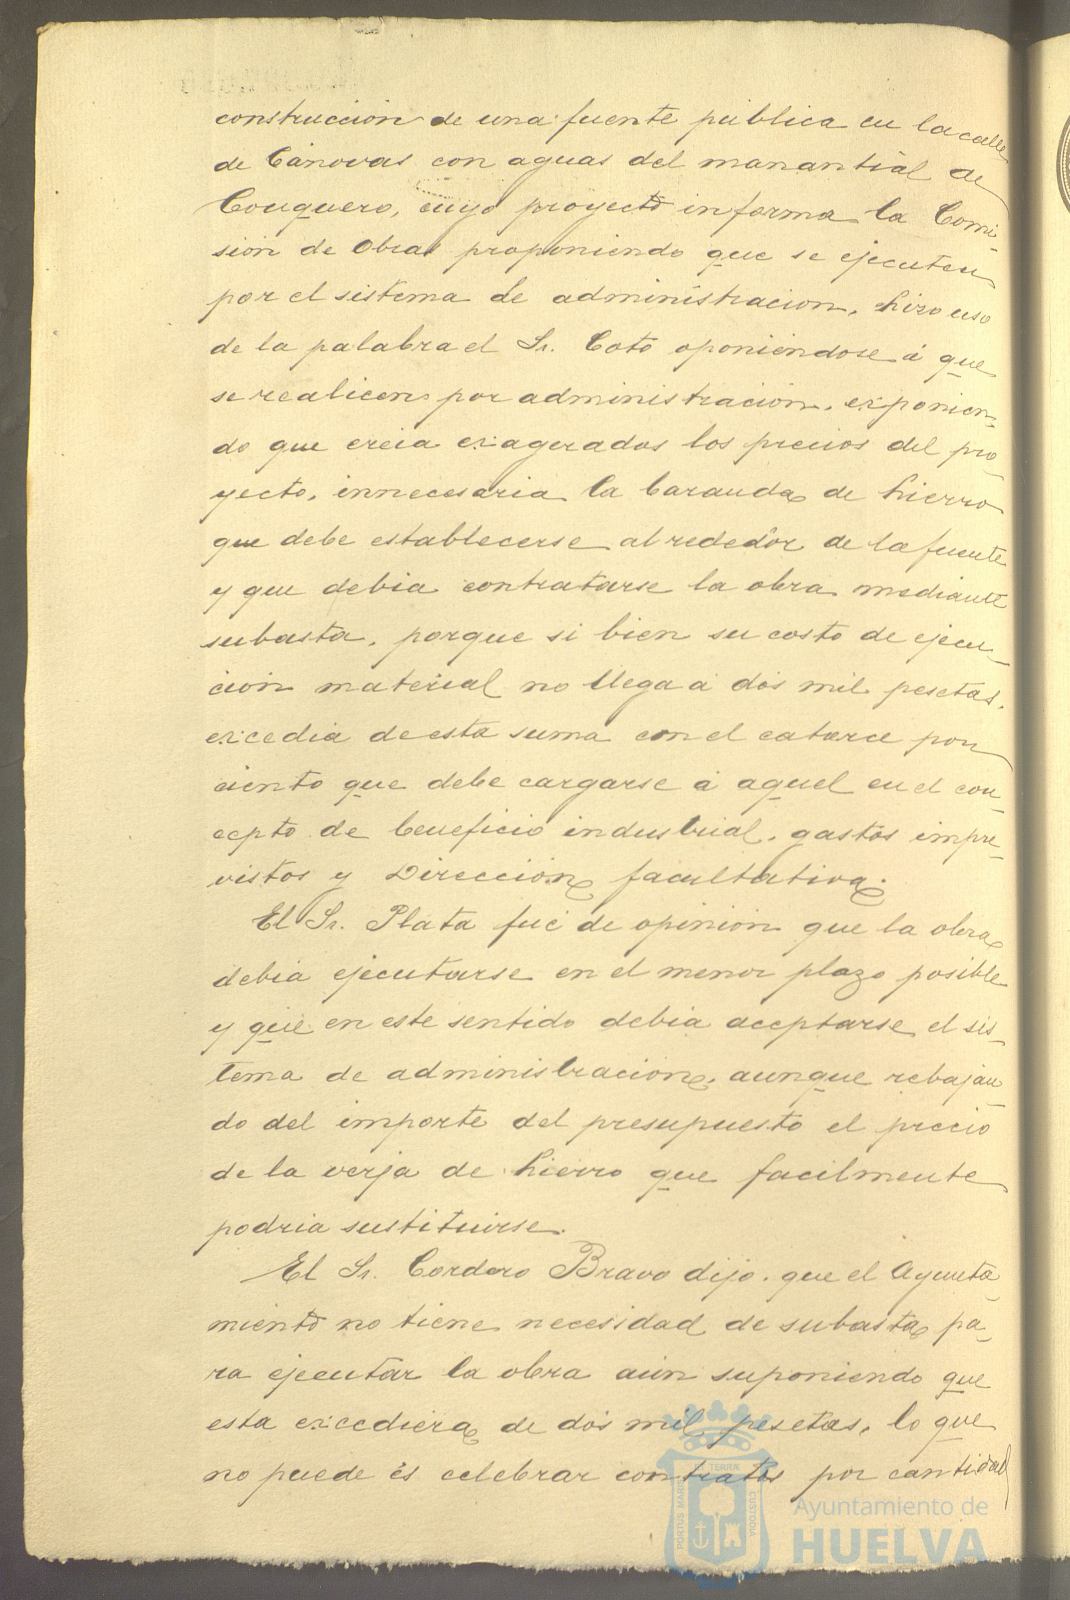 construccion de una fuente pública en la calle
de Cánovas con aguas del manantial de
Conquero, cuyo proyecto informa la Comi-
sion de Obras proponiendo que se ejecuten
por el sistema de administracion, hizo uso
de la palabra el Sr. Coto oponiéndose á que
se realicen por administracion, exponien-
do que creia exagerados los precios del pro-
yecto, innecesaria la baranda de hierro
que debe establecerse alrededor de la fuente
y que debia contratarse la obra mediante
subasta, porque si bien su costo de ejecu-
ción material no llega á dos mil pesetas,
excedia de esta suma con el catorce por
ciento que debe cargarse á aquel en el con-
cepto de beneficio industrial, gastos impre-
vistos y Dirección facultativa.
El Sr. Plata fué de opinion que la obra
debia ejecutarse en el menor plazo posible
y que en este sentido debia aceptarse el sis-
tema de administracion, aunque rebajan-
do del importe del presupuesto el precio
de la verja de hierro que facilmente
podria sustituirse.
El Sr. Cordero Bravo dijo que el Ayunta-
miento no tiene necesidad de subasta pa-
ra ejecutar la obra aún suponiendo que
esta excediera de dos mil pesetas, lo que
no puede es celebrar contratos por cantidad
PORTUS MARIS ET TERRA CUSTODIA
Ayuntamiento de
HUELVA